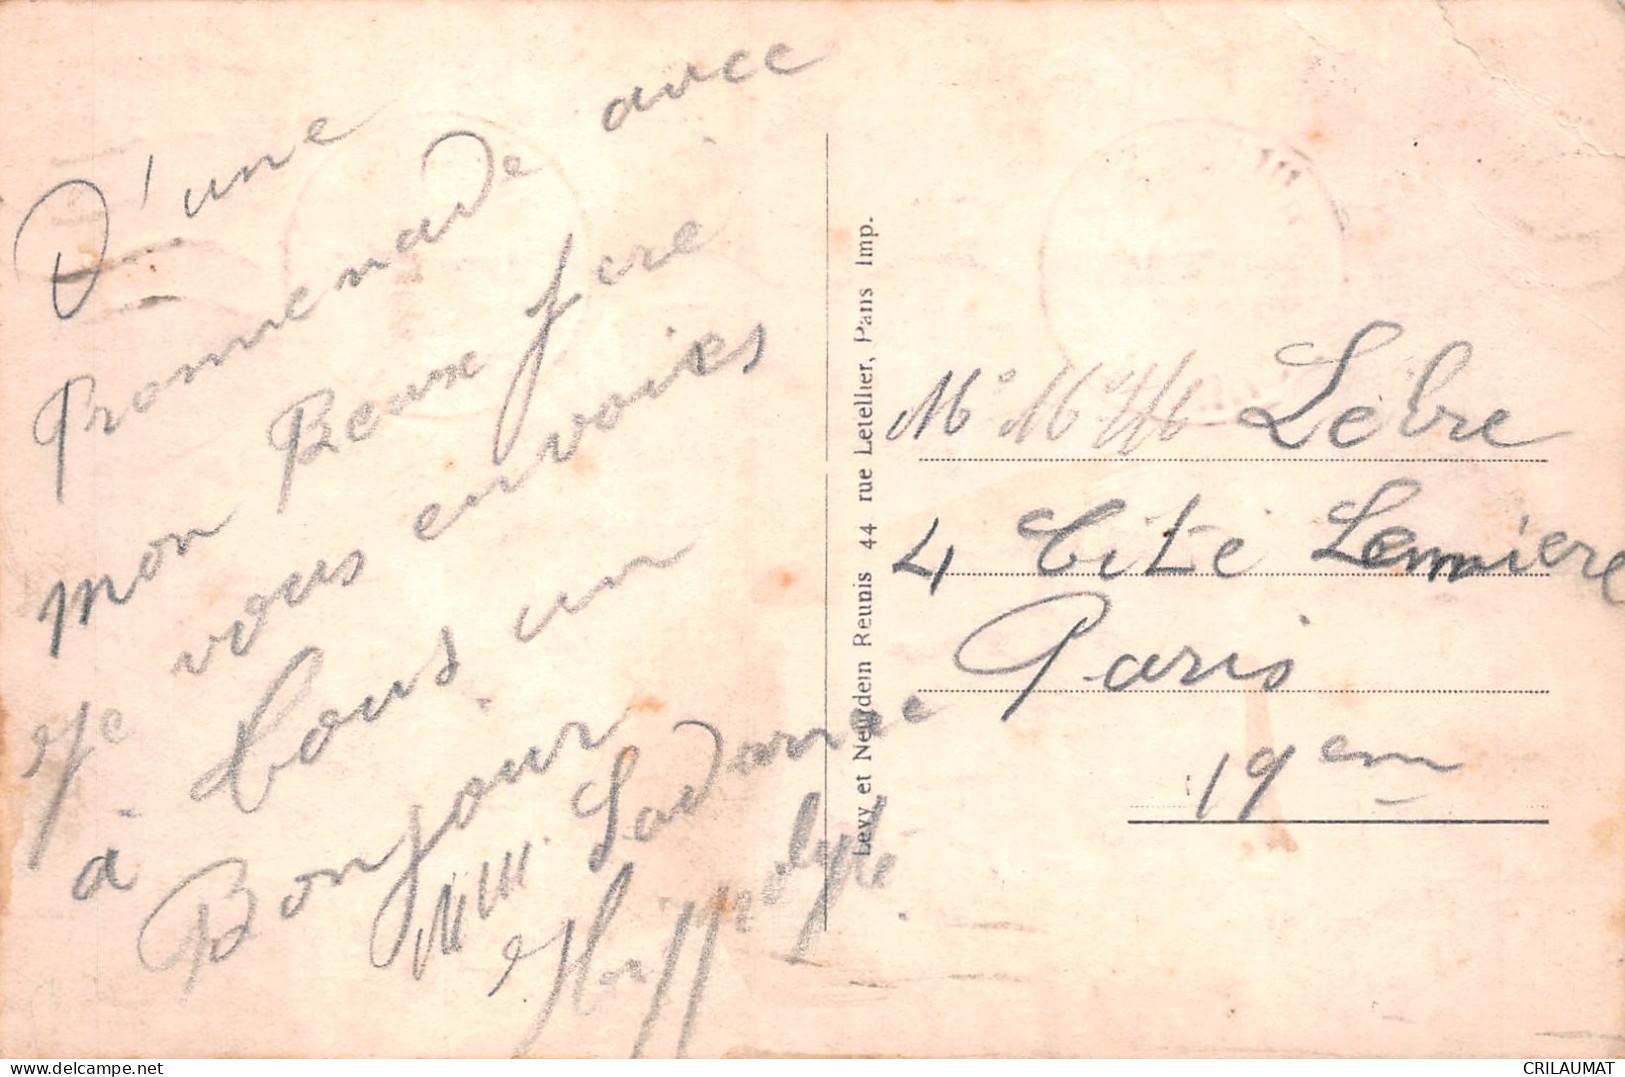 D'une
Promenade avec
mon Beaux fere
je vous envoies
à Tous un
Bonjour
Hippolyte
Levy et Neurdein Reunis 44 rue Letellier, Paris Imp.
Lebre
4 Cité Lemiere
Paris
19em
delcampe.net
CRILAUMAT